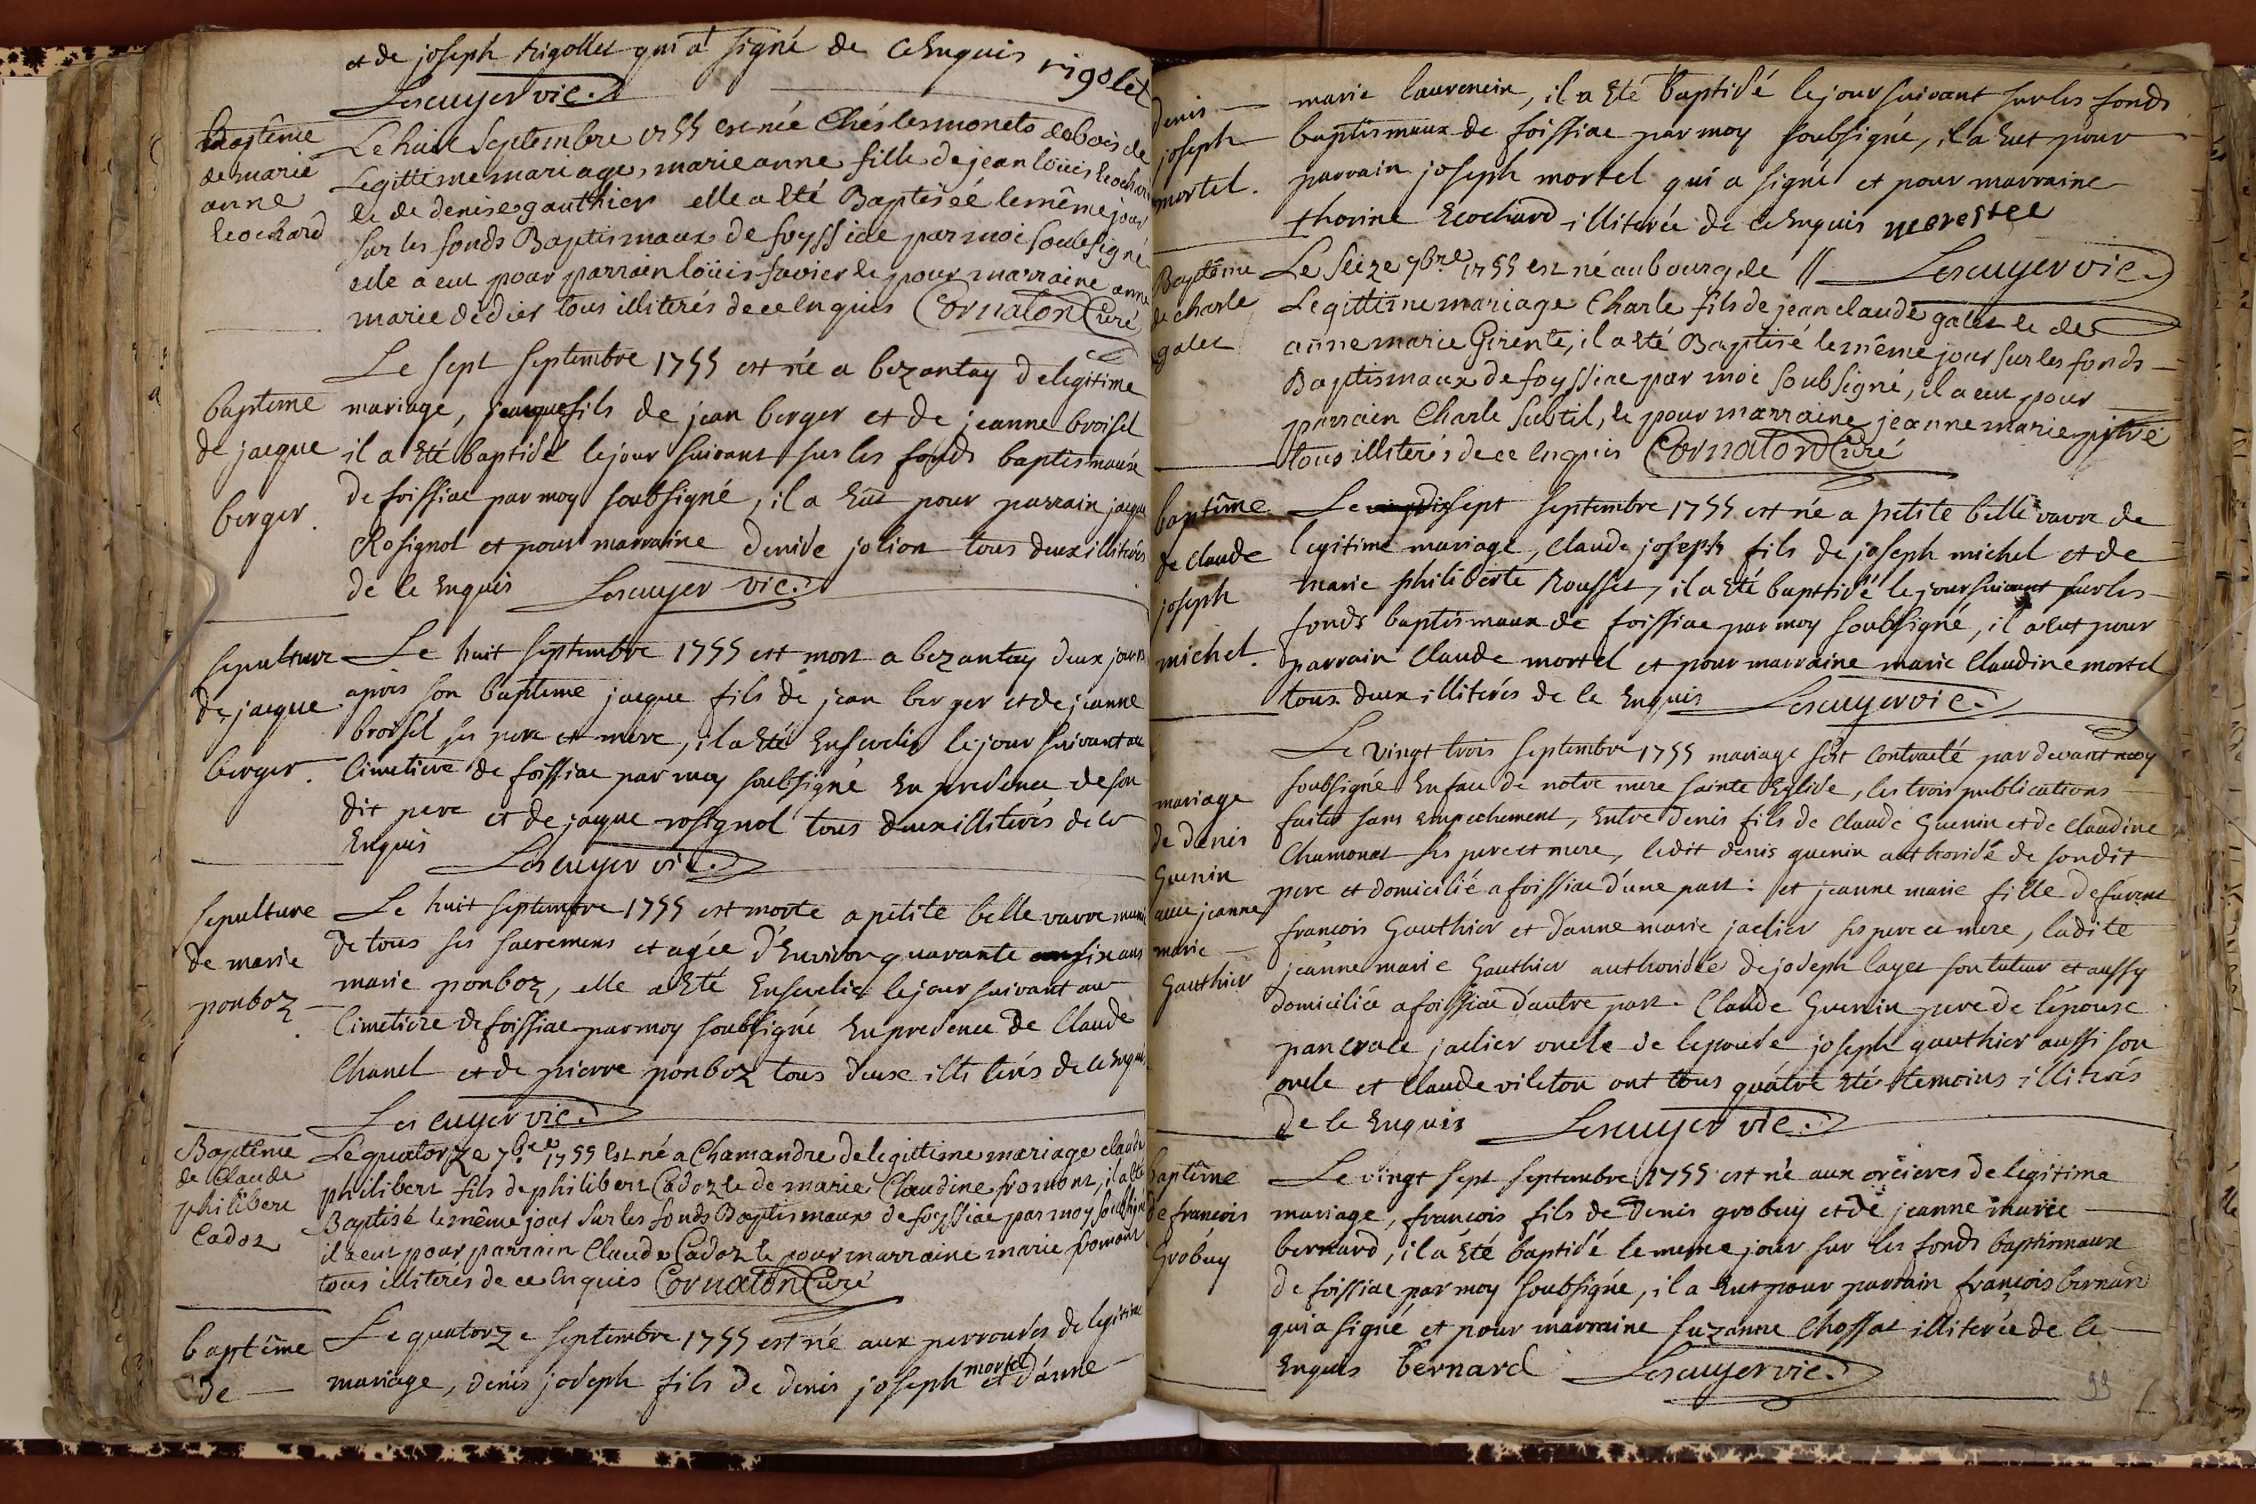 et de joseph Rigollet qui a signé de ce Enquis rigolet
Lescuyer vic.
Baptême
de marie
anne
Ecochard
Le huit Septembre 1755 est née Chés les monets dubois de
Legittime mariage, marie anne fille de jean loüis Ecochard
et de denise gauthier elle a eté Baptisée le même jour
sur les fonds Baptismaux de foyssiac par moi soubsigné
elle a eut pour parrain loüis favier et pour marraine anne
marie didier tous illiterés de ce Enquis Cornaton Curé
baptême
de jacque
berger.
Le sept septembre 1755 est né a bezantay de legitime
mariage, jacque fils de jean berger et de jeanne broisel
il a Eté baptisé le jour suivant sur les fonds baptismaux
de foissiac par moy soubsigné, il a Eut pour parrain jacque
Rosignol et pour marraine denise jolion tous deux illiterés
de ce Enquis Lescuyer vic.
sepulture
de jacque
berger.
Le huit septembre 1755 est mort a bezantay deux jours
apres son baptême jacque fils de jean berger et de jeanne
broisel ses pere et mere, il a Eté Enseveli le jour suivant au
Cimetiere de foissiac par moy soubsigné En presence de son
dit pere et de jacque rosignol tous deux illiterés de ce
Enquis Lescuyer vic.
sepulture
de marie
ponboz
Le huit septembre 1755 est morte a petite belle vavre munie
de tous ses sacremens et agée d'Environ quarante six ans
marie ponboz, elle a Eté Ensevelie le jour suivant au
Cimetiere de foissiac par moy soubsigné En presence de Claude
Chanel et de pierre ponboz tous deux illiterés de ce Enquis
Lescuyer vic.
Baptême
de Claude
philibert
Cadoz
Le quatorze 7bre 1755 Est né a Chamandre de legittime mariage claude
philibert fils de philibert Cadoz et de marie Claudine fromont, il a été
Baptisé le même jour sur les fonds Baptismaux de foyssiac par moy soubsigné
il a eut pour parrain Claude Cadoz et pour marraine marie fromont
tous illiterés de ce Enquis Cornaton Curé
baptême
de
Le quatorze septembre 1755 est né aux perroudes de legitime
mariage, denis joseph fils de denis joseph mortel et d'anne
denis
joseph
mortel.
marie laurencin, il a Eté baptisé le jour suivant sur les fonds
baptismaux de foissiac par moy soubsigné, il a Eut pour
parrain joseph mortel qui a signé et pour marraine
thorine Ecochard illiterée de ce Enquis
Lescuyer vic.
Baptême
de charle
galet
Le Seize 7bre 1755 est né au bourg de
Legittime mariage Charle fils de jean claude galet et de
anne marie Girente, il a Eté Baptisé le même jour sur les fonds
Baptismaux de foyssiac par moi soubsigné, il a eut pour
parrain Charle Subtil, et pour marraine jeanne marie pitre
tous illiterés de ce Enquis Cornaton Curé
baptême
de claude
joseph
michel.
Le dixsept septembre 1755 est né a petite belle vavre de
legitime mariage, claude joseph fils de joseph michel et de
marie philiberte Rousset, il a Eté baptisé le jour suivant sur les
fonds baptismaux de foissiac par moy soubsigné, il a Eut pour
parrain Claude mortel et pour marraine marie Claudine mortel
tous deux illiterés de ce Enquis Lescuyer vic.
mariage
de denis
Guenin
avec jeanne
marie
Gauthier
Le vingt trois septembre 1755 mariage s'est Contracté par devant moy
soubsigné En face de notre mere sainte Eglise, les trois publications
faites sans empechement, Entre denis fils de Claude Guenin et de Claudine
Chamonat ses pere et mere, ledit denis guenin authorisé de sondit
pere et domicilié a foissiac d'une part : et jeanne marie fille de
françois Gauthier et d'anne marie jaclier ses pere et mere, ladite
jeanne marie Gauthier authorisée de joseph layet son tuteur et aussy
domiciliée a foissiac d'autre part. Claude Guenin pere de l'epouse
pancrace jaclier oncle de lepouse joseph gauthier aussi son
oncle et claude vileton ont tous quatre Eté temoins illiterés
de ce Enquis Lescuyer vic.
baptême
de françois
Grobuy
Le vingt sept septembre 1755 est né aux orcieres de legitime
mariage, françois fils de Denis grobuy et de jeanne marie
bernard, il a Eté baptisé le meme jour sur les fonds baptismaux
de foissiac par moy soubsigné, il a Eut pour parrain françois bernard
qui a signé et pour marraine suzanne Chossat illiterée de ce
Enquis bernard Lescuyer vic.